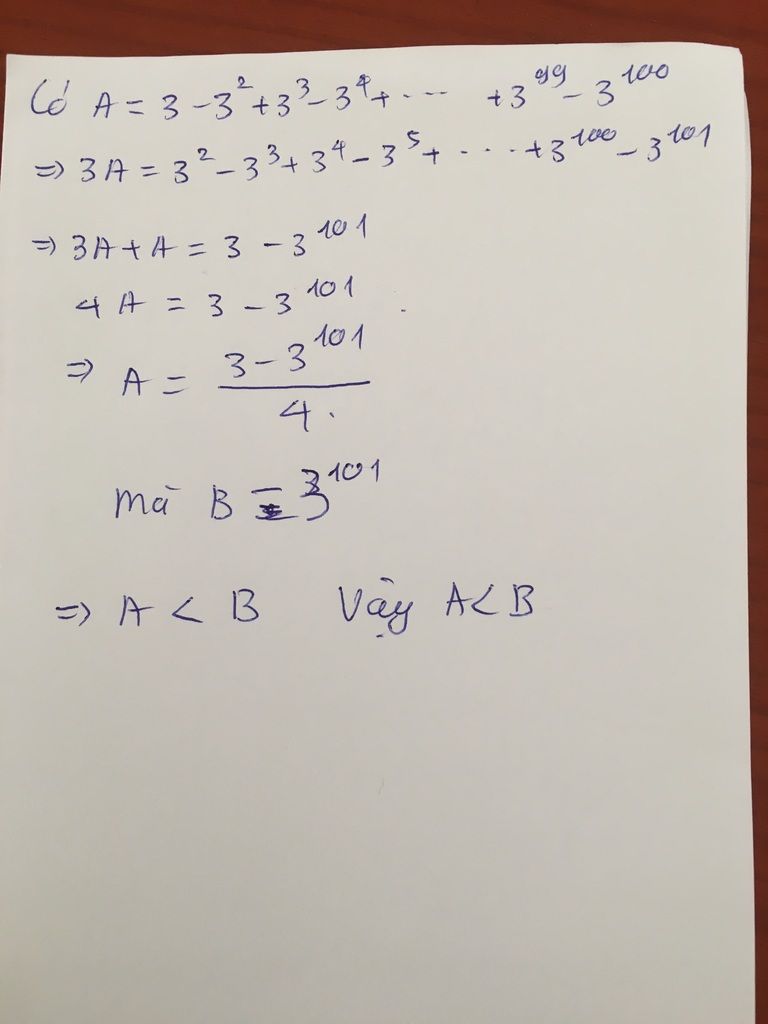 Có A = 3 - 3² + 3³ - 3⁴ + ... + 3⁹⁹ - 3¹⁰⁰
=> 3A = 3² - 3³ + 3⁴ - 3⁵ + ... + 3¹⁰⁰ - 3¹⁰¹
=> 3A + A = 3 - 3¹⁰¹
4A = 3 - 3¹⁰¹
=> A = (3 - 3¹⁰¹)/4.
mà B = 3¹⁰¹
=> A < B Vậy A < B